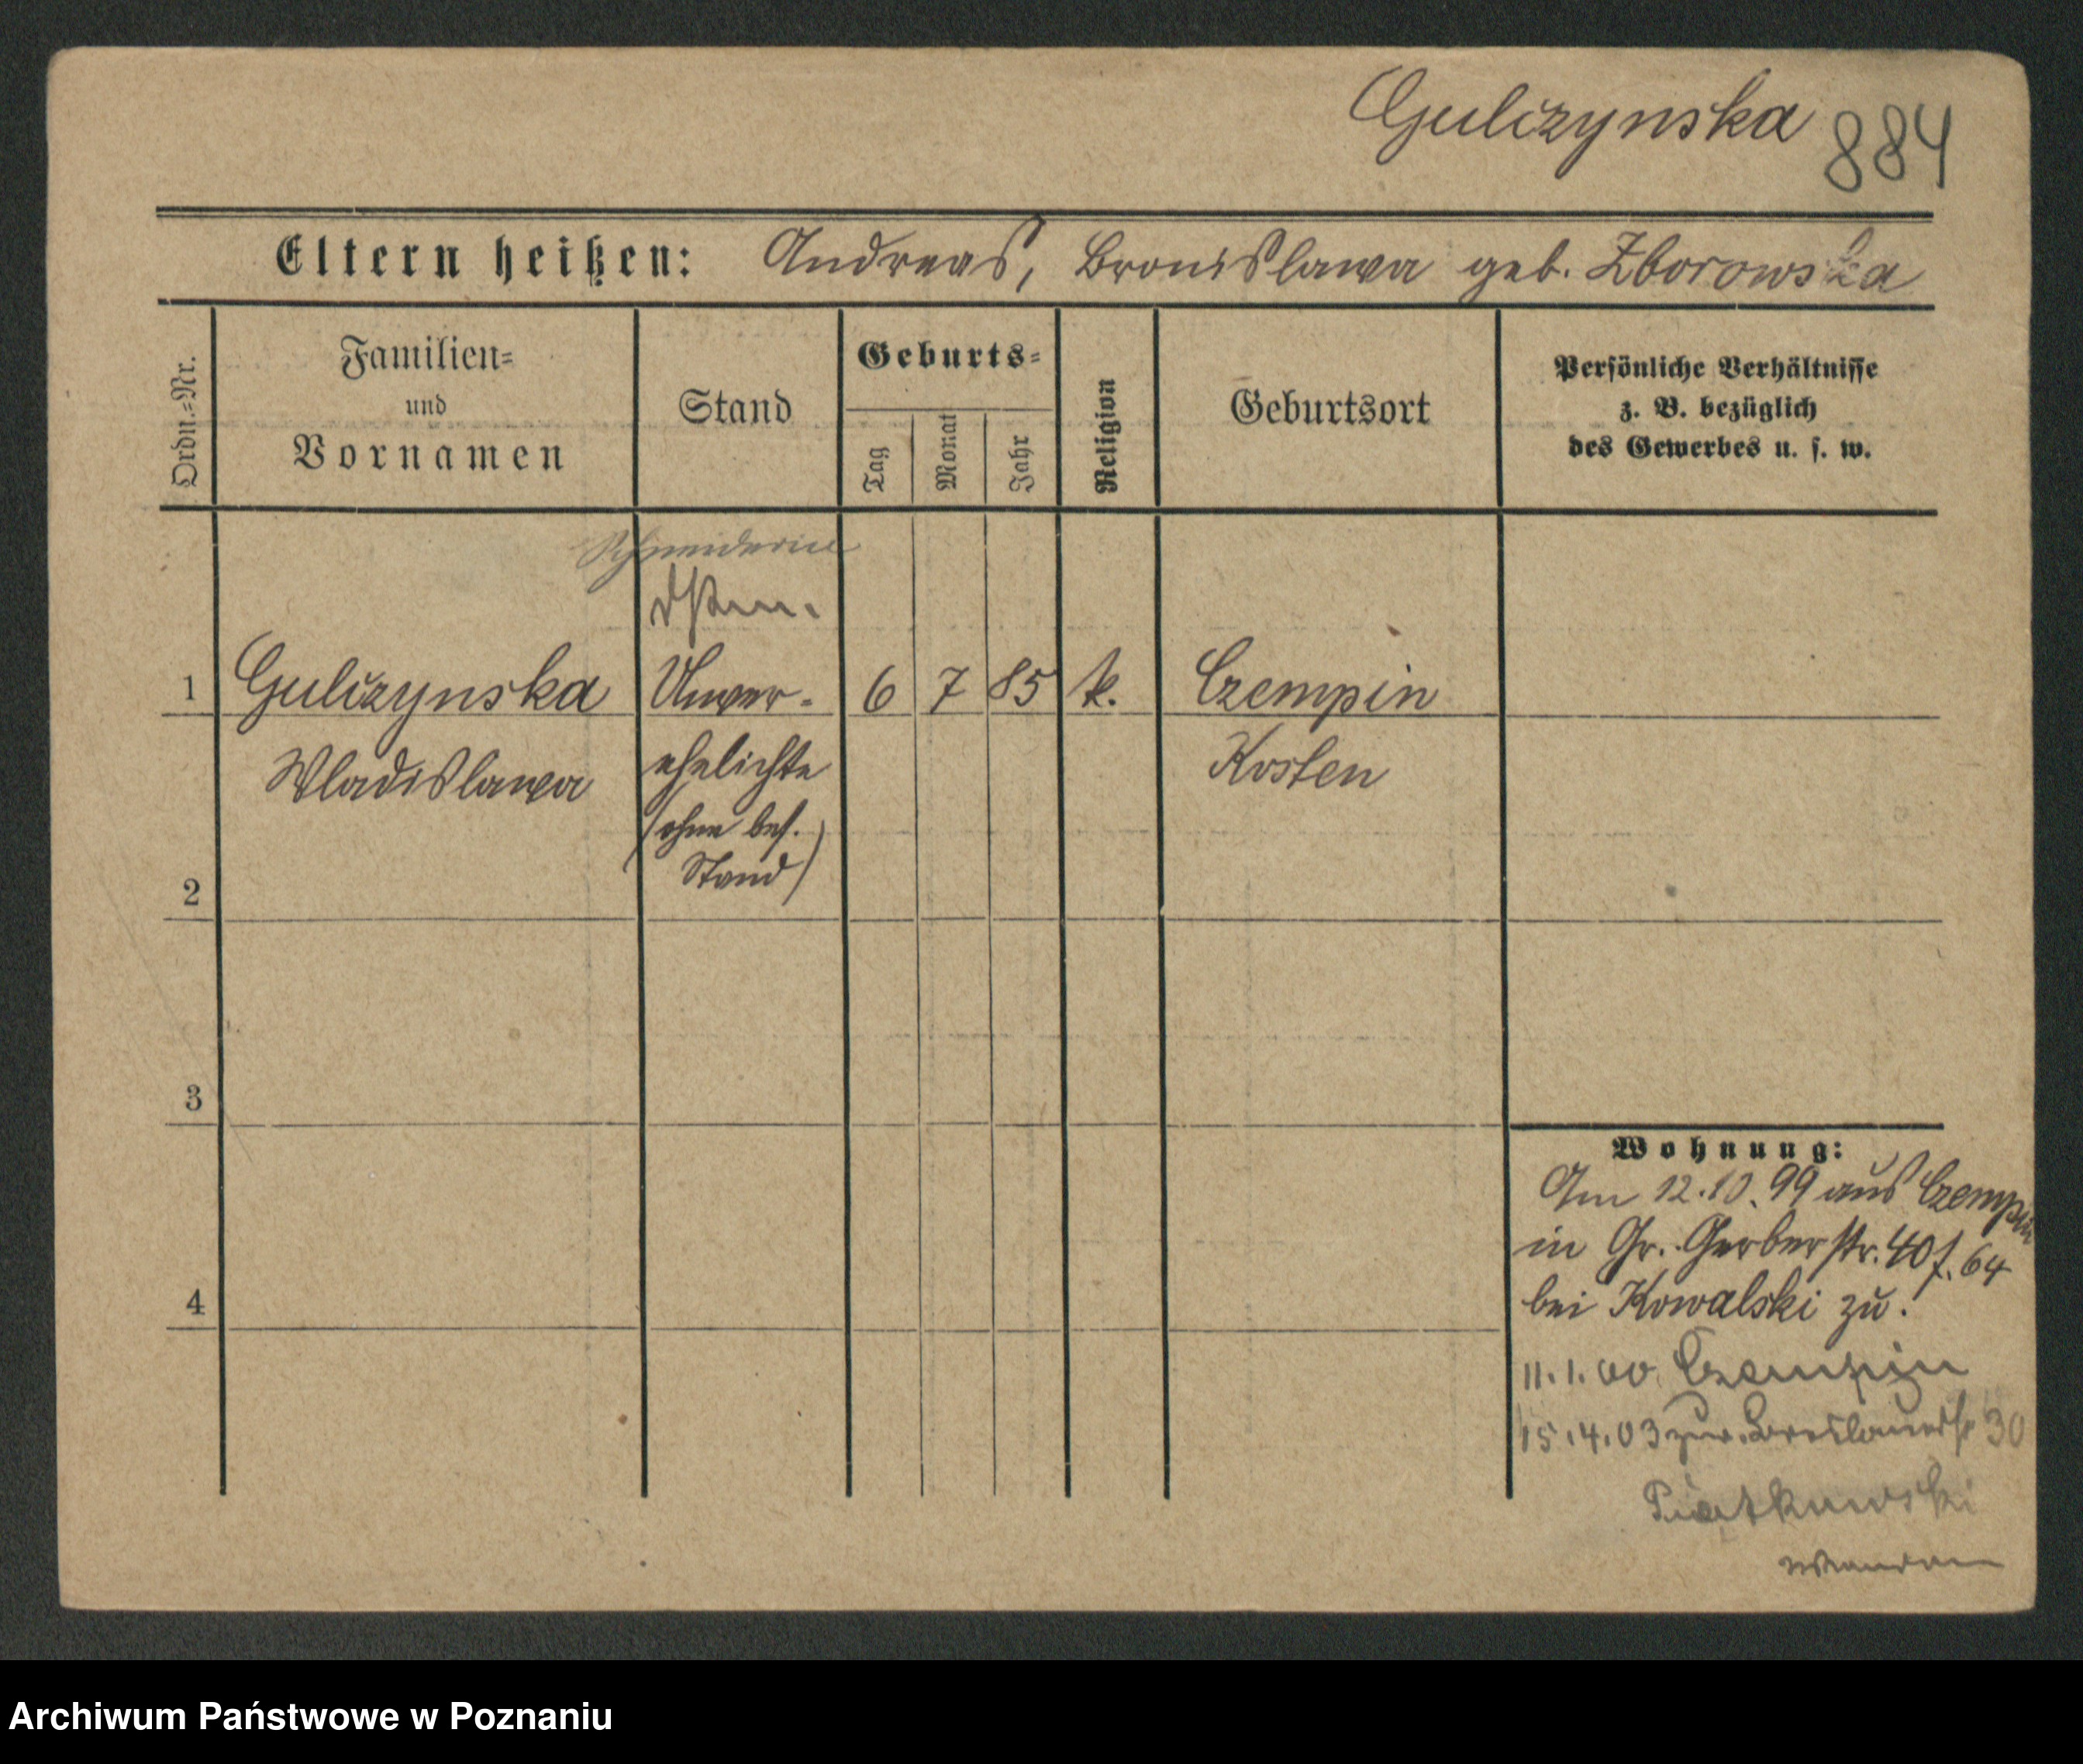 Gulczynska 884
Eltern heißen: Andreas, Bronislawa geb. Zborowska
Ordn.-Nr.
Familien-
und
Vornamen
Stand
Geburts-
Tag
Monat
Jahr
Religion
Geburtsort
Persönliche Verhältnisse
z. B. bezüglich
des Gewerbes u. s. w.
Schneiderin
1 Gulczynska Unver- 6 7 85 k. Czempin
Wladislawa ehelichte Kosten
(ohne bes.
Stand)
2
3
4
Wohnung:
Am 12.10.99 aus Czempin
in Gr. Gerberstr. 40 f. 64
bei Kowalski zu.
11.1.00 Czempin
15.4.03 zur. Breslauerstr 30
Piątkowski
Archiwum Państwowe w Poznaniu